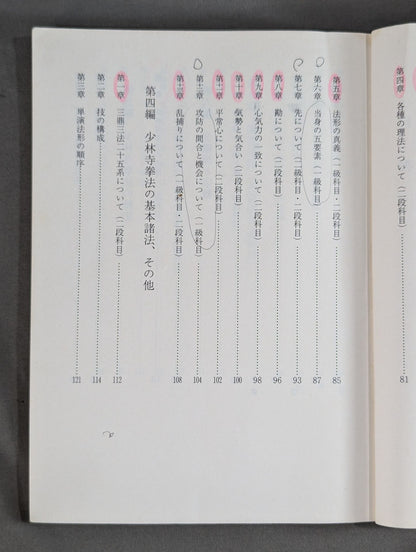 第四章 各種の理法について（二段科目）…… 81
第五章 法形の真義（一級科目・二段科目）…… 85
第六章 当身の五要素（一級科目）…… 87
第七章 先について（一級科目・二段科目）…… 93
第八章 勘について（二段科目）…… 96
第九章 心気力の一致について（二段科目）…… 98
第十章 気勢と気合い（三段科目）…… 100
第十一章 平常心について（二段科目）…… 102
第十二章 攻防の間合と機会について（一級科目）…… 104
第十三章 乱捕りについて（一級科目・二段科目）…… 108
第四編 少林寺拳法の基本諸法、その他
第一章 三鼎三法二十五系について（二段科目）…… 112
第二章 技の構成…… 114
第三章 単演法形の順序…… 121